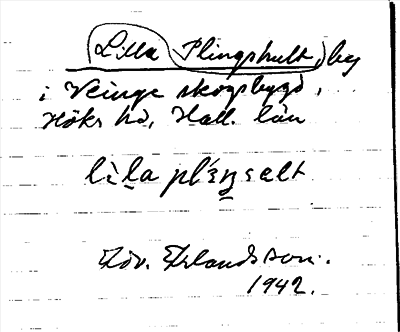 Lilla Plingshult, by
i Veinge skogsbygd,
Höks hd, Hall. län
lìla pléŋselt
Edv. Erlandsson.
1942.